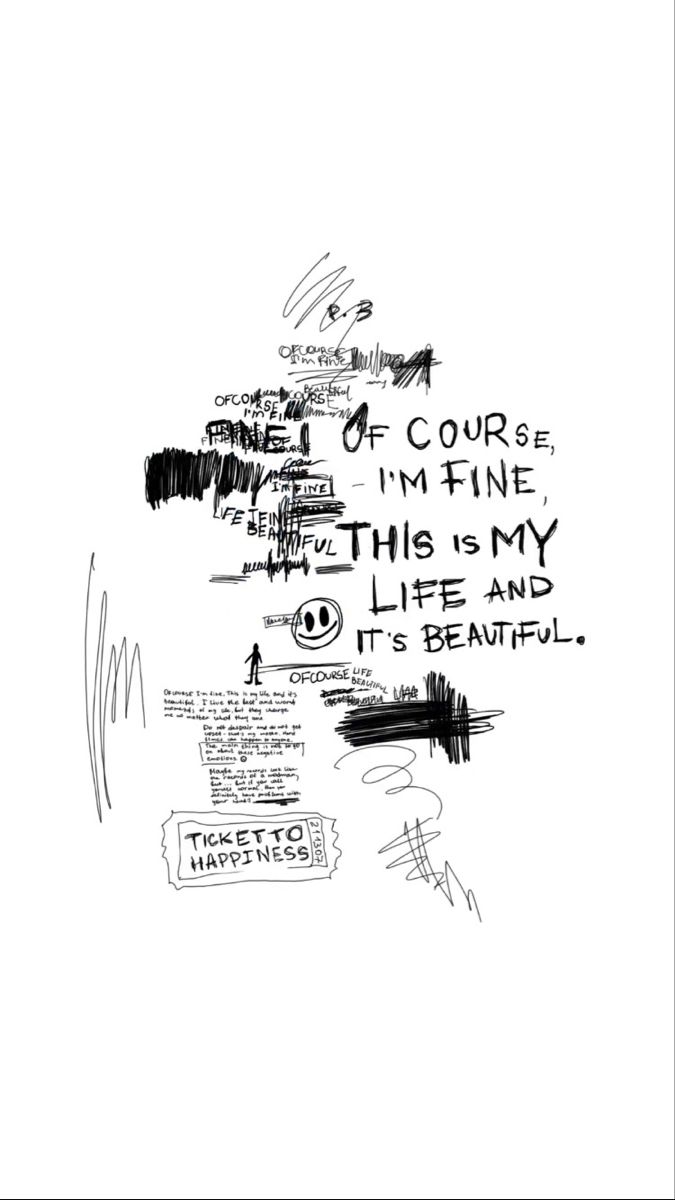 P.B
OFCOURSE
I'M FINE
Beautiful
OFCOURSE
COURSE
I'M FINE
FINE
OF
COURSE
I'M FINE
LIFE
BEAUTIFUL
OF COURSE,
- I'M FINE,
THIS IS MY
LIFE AND
IT'S BEAUTIFUL.
OFCOURSE LIFE
BEAUTIFUL
OFCOURSE I'm fine, This is my life and it's
beautiful. I live the best and worst
moments of my life, but they change
me no matter what they are
Do not despair and do not get
upset - that's my motto. Hard
times can happen to anyone.
The main thing is not to go
on about these negative
emotions
Maybe my records look like
the records of a madman,
but... but if you call
yourself normal, then you
definitely have problems with
your head?
TICKET TO
HAPPINESS
211307